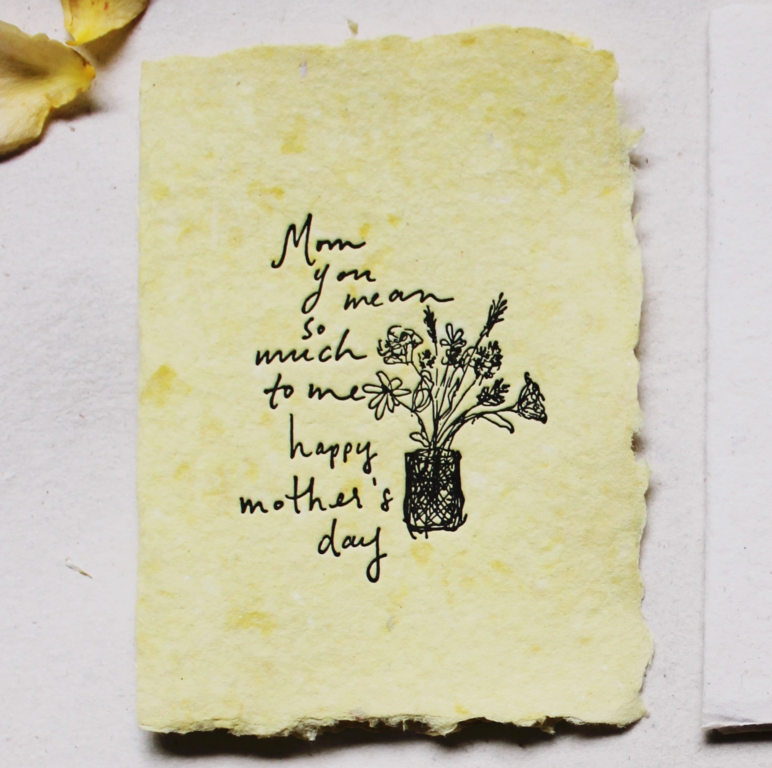 Mom
you
mean
so
much
to me
happy
mother's
day